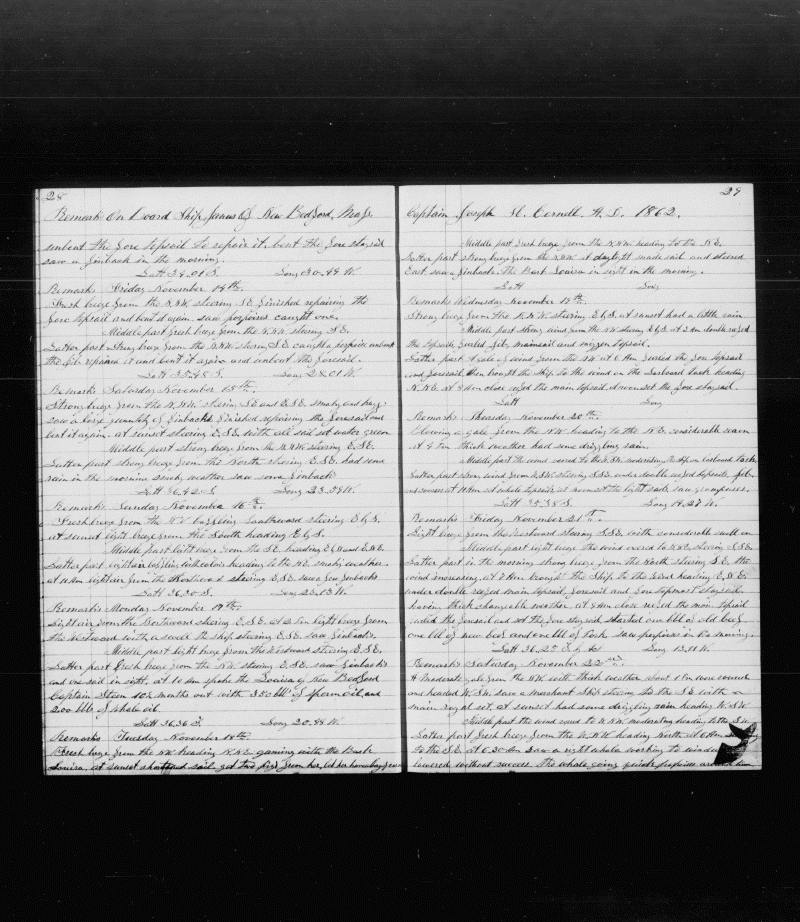 28
Remarks On Board Ship Janus of New Bedford, Mass.
unbent the fore topsail to repair it, bent the fore staysail
saw a finback in the morning.
Latt 34.01 S. Long 30.49 W.
Remarks Friday November 14th.
Fresh breeze from the N.N.W. steering S.E. finished repairing the
fore topsail and bent it again. saw porpoises caught one.
Middle part fresh breeze from the N.N.W. steering S.E.
Latter part strong breeze from the W.N.W. steering S.E. caught a porpoise unbent
the jib repaired it and bent it again and unbent the foresail.
Latt 35.48 S. Long 28.01 W.
Remarks Saturday November 15th.
Strong breeze from the N.N.W. steering S.E. and E.S.E. smoky and foggy
saw a large quantity of finbacks finished repairing the foresail and
bent it again. at sunset steering E.S.E. with all sail set water green
Middle part strong breeze from the N.N.W. steering E.S.E.
Latter part strong breeze from the North steering E.S.E. had some
rain in the morning smoky weather saw some finbacks
Latt 36.42 S. Long 23.59 W.
Remarks Sunday November 16th.
Fresh breeze from the NW steering E by S.
at sunset light breeze from the South heading E by S.
Middle part light breeze from the S.E. heading
Latter part light air heading to the N.E. smoky weather
at 10 Am light air from the Northward steering E.S.E. saw a few finbacks
Latt 36.30 S. Long 23.13 W.
Remarks Monday November 17th.
Light air from the Westward steering E.S.E. at 12 Pm light breeze from
the Westward with a swell the ship steering E.S.E. saw finbacks.
Middle part light breeze from the Westward steering E.S.E.
Latter part fresh breeze from the N.W. steering E.S.E. saw finbacks
and one sail in sight, at 10 Am spoke the Louisa of New Bedford
Captain Steen months out with 350 bbls of sperm oil and
200 bbls of whale oil.
Latt 36.36 S. Long 20.48 W.
Remarks Tuesday November 18th.
Fresh breeze from the NW heading N.N.E. gaming with the Bark
Louisa, at sunset shortened sail got two pigs from her,
29
Captain Joseph H. Cornell. A.D. 1862.
Middle part fresh breeze from the N.N.W. heading to the N.E.
Latter part strong breeze from the N.N.W. at daylight made sail and steered
East. saw a finback. The Bark Louisa in sight in the morning.
Latt Long
Remarks Wednesday November 19th.
Strong breeze from the N.W. steering E by S. at sunset had a little rain
Middle part strong wind from the NW steering E by S. at 2 Am double reefed
the topsails, furled jib, mainsail and mizzen topsail.
Latter part a gale of wind from the NW at 6 Am furled the fore topsail
and foresail then brought the ship to the wind on the larboard tack heading
N.N.E. at 8 Am close reefed the main topsail at noon set the fore staysail.
Latt Long
Remarks Thursday November 20th.
Blowing a gale from the NW heading to the N.E. considerable warm
at 4 Pm thick weather had some drizzling rain.
Middle part the wind veered to the
Latter part strong wind from W.S.W. steering S.S.E. under double reefed topsails, jib
at noon set the light sails saw grampuses.
Latt 35.38 S. Long 14.27 W.
Remarks Friday November 21st.
Light breeze from the Westward steering S.S.E. with considerable swell on
Middle part light breeze the wind veered to N.N.E. steering S.S.E.
Latter part in the morning strong breeze from the North steering S.E. the
wind increasing. at 7 Am brought the ship to the wind heading E.N.E.
under double reefed main topsail foresail and fore topmast staysail
having thick changeable weather. at 9 Am close reefed the main topsail
reefed the foresail and set the fore staysail started one bbl of old beef
one bbl of new beef and one bbl of Pork saw porpoises in the morning.
Latt 36. Long 13.11 W.
Remarks Saturday November 22nd.
A moderate gale from the NW with thick weather about 1 Pm wore round
and headed W.S.W. saw a merchant ship steering to the S.E. with a
main royal set, at sunset had some drizzling rain heading W.S.W.
Middle part the wind veered to W.N.W. moderating heading to the S.W.
Latter part fresh breeze from the W.N.W. heading North. at 6 Am
to the S.E. at 6.30 Am saw a right whale working to windward
lowered without success. The whale going quick porpoises around him